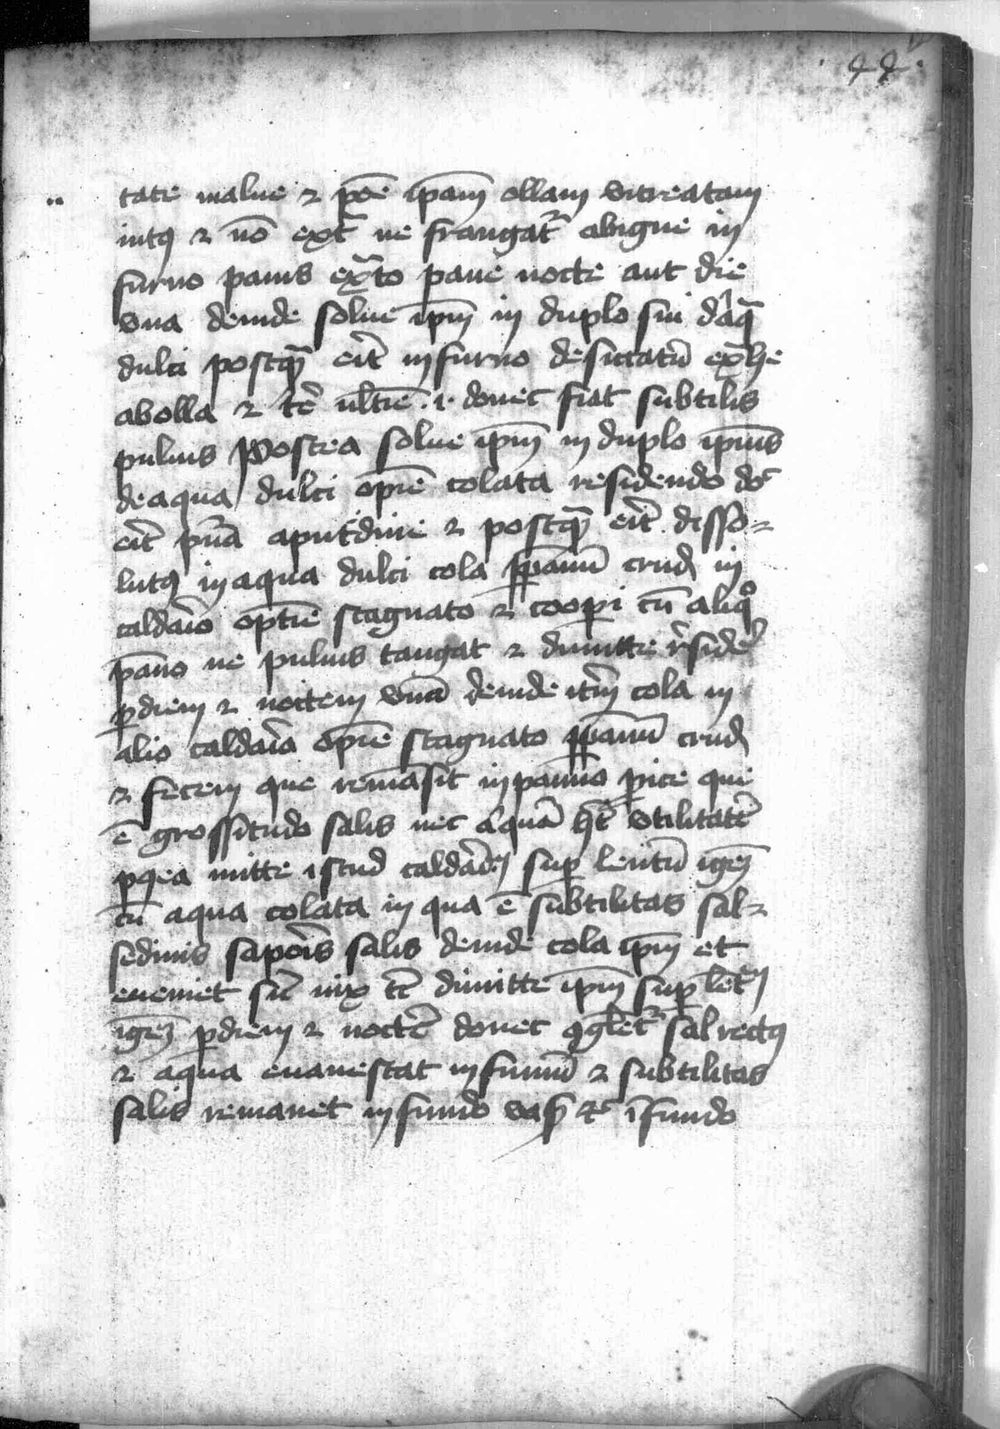 44.
tate malue ⁊ pōe ip̄am ollam vitreatam
intꝰ ⁊ nō ext̄ ne frangat᷑ abigne in
furno panis ext̃cto pane nocte aut die
vna deinde solue ip̄m in duplo sui d'aq̄
dulci postq̄ erit in furno desiccatū ext̃he
abolla ⁊ t̄e ult̄ie .i. donec fiat subtilis
puluis Postea solue ip̄m in duplo ipīus
de aqua dulci opt̄ie colata residendo
erit ⁊ postq̄ erit disso⸗
lutꝰ in aqua dulci cola ꝑ pannū crud in
caldario opt̄ie stagnato ⁊ coopi cū aliqͦ
pāno ne puluis tangat ⁊ dimitte r̄sider̄
ꝑ diem ⁊ noctem vnā deinde it̄m cola in
alio caldario opt̄ie stagnato ꝑ pannū crud
⁊ fecem que remāsit in panno ꝓice que
ē grossitudo salis nec aliquā h̄t vtilitatē
p̄ea mitte istud caldariū sup̄ lentū ignē
cū aqua colata in qua ē subtilitas sal⸗
sedinis sapoīs salis deinde cola ip̄m et
eueniet sic nix t̄c dimitte ip̄m sup̄ lentū
ignē ꝑ diem ⁊ noctē donec ꝯglet᷑ sal rectꝰ
⁊ aqua euanescat in fumū ⁊ subtilitas
salis remanet in fundo vasis ⁊ī fundo